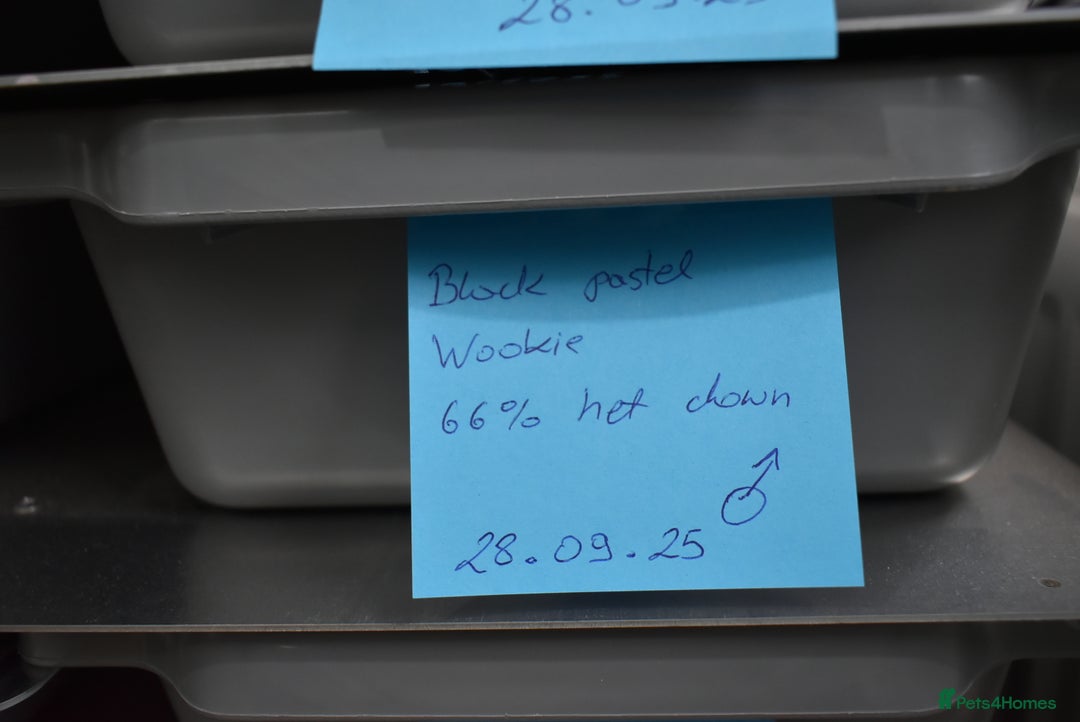 28.09.25
Black pastel
Wookie
66% het clown
♂
28.09.25
Pets4Homes